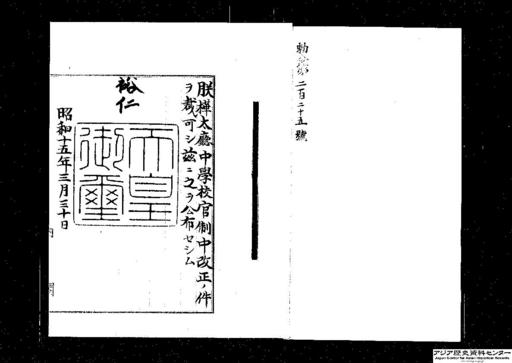 勅令第二百二十五號
朕樺太廳中學校官制中改正ノ件
ヲ裁可シ玆ニ之ヲ公布セシム
裕仁
天皇
御璽
昭和十五年三月三十日
内閣
アジア歴史資料センター
Japan Center for Asian Historical Records